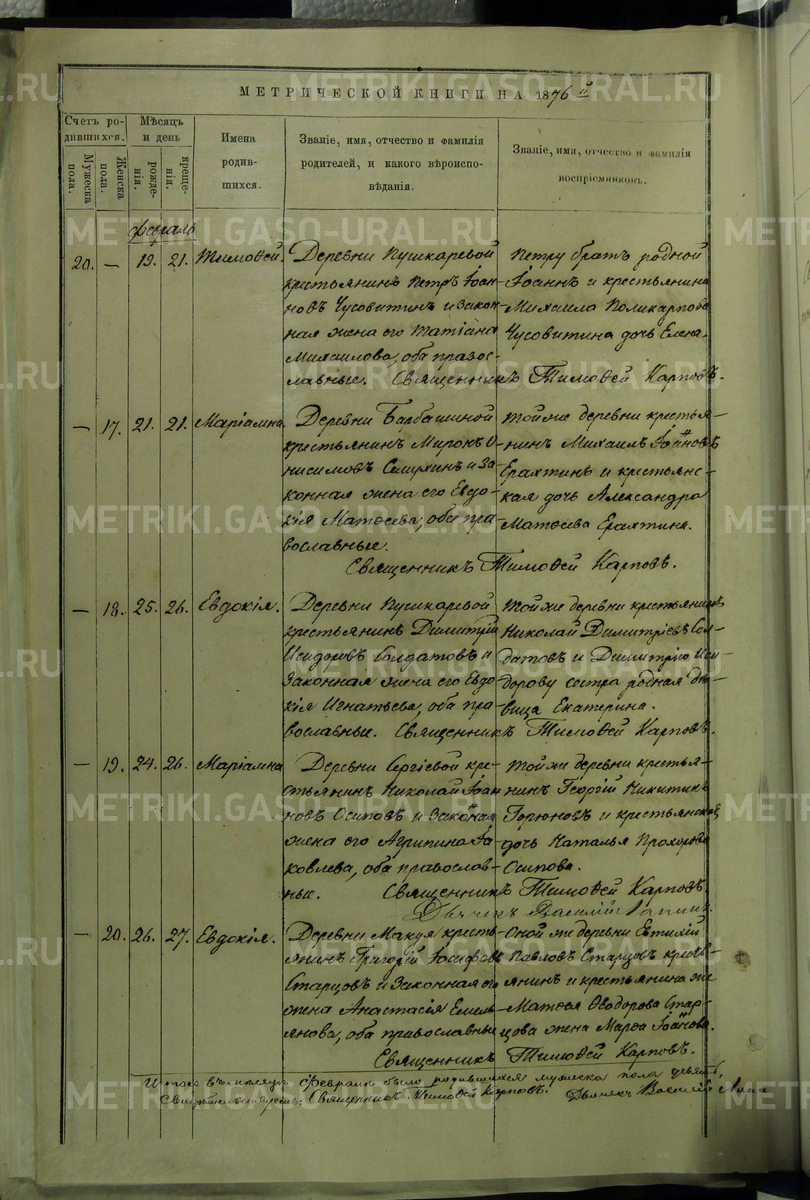 МЕТРИЧЕСКОЙ КНИГИ НА 1876й
Счетъ ро-
дившихся.
Мужеска пола.
Женска пола.
Мѣсяцъ
и день
рожде-
нія.
креще-
нія.
Имена
родив-
шихся.
Званіе, имя, отчество и фамилія
родителей, и какого вѣроиспо-
вѣданія.
Званіе, имя, отчество и фамилія
воспріемниковъ.
Февраль
20. — 19. 21. Тимоѳей.
Деревни Пушкаревой
крестьянинъ Петръ Іоан-
новъ Чусовитинъ и закон-
ная жена его Татіана
Михаилова, оба правос-
лавные.
Петру братъ родной
Іоаннъ и крестьянина
Михаила Поликарпова
Чусовитина дочь Елена.
Священникъ Тимоѳей Карповъ.
— 17. 21. 21. Маріамна
Деревни Барбашиной
крестьянинъ Миронъ О-
нисимовъ и за-
конная жена его Евдо-
кія Матѳеева, оба пра-
вославные.
Той же деревни крестья-
нинъ Михаилъ Іоанновъ
Ерахтинъ и крестьянс-
кая дочь Александра
Матѳеева Ерахтина.
Священникъ Тимоѳей Карповъ.
— 18. 25. 26. Евдокія.
Деревни Пушкаревой
крестьянинъ Димитрій
Исидоровъ Солдатовъ и
законная жена его Евдо-
кія Игнатьева, оба пра-
вославные.
Той же деревни крестьянинъ
Николай Димитріевъ Сол-
датовъ и Димитрію Иси-
дорову сестра родная дѣ-
вица Екатерина.
Священникъ Тимоѳей Карповъ.
— 19. 24. 26. Маріамна
Деревни Сергіевой кре-
стьянинъ Николай Іоан-
новъ Осиповъ и законная
жена его Агрипина Іа-
ковлева, оба православ-
ные.
Той же деревни крестья-
нинъ Георгій Никитинъ
Горюновъ и крестьянская
дочь Наталья Прохорова
Осипова.
Священникъ Тимоѳей Карповъ.
Дьячекъ Василій
— 20. 26. 27. Евдокія.
Деревни кресть-
янинъ Григорій Іосифовъ
Старцовъ и законная его
жена Анастасія Емель-
янова, оба православные
Оной же деревни
Павловъ Старцовъ кресть-
янинъ и крестьянина же
Матѳея Ѳеодорова Стар-
цова жена Марѳа Іоаннова.
Священникъ Тимоѳей Карповъ.
Итого въ мѣсяцѣ Февралѣ было родившихся мужеска пола девять,
Священникъ Тимоѳей Карповъ. Дьячекъ Василій
METRIKI.GASO-URAL.RU